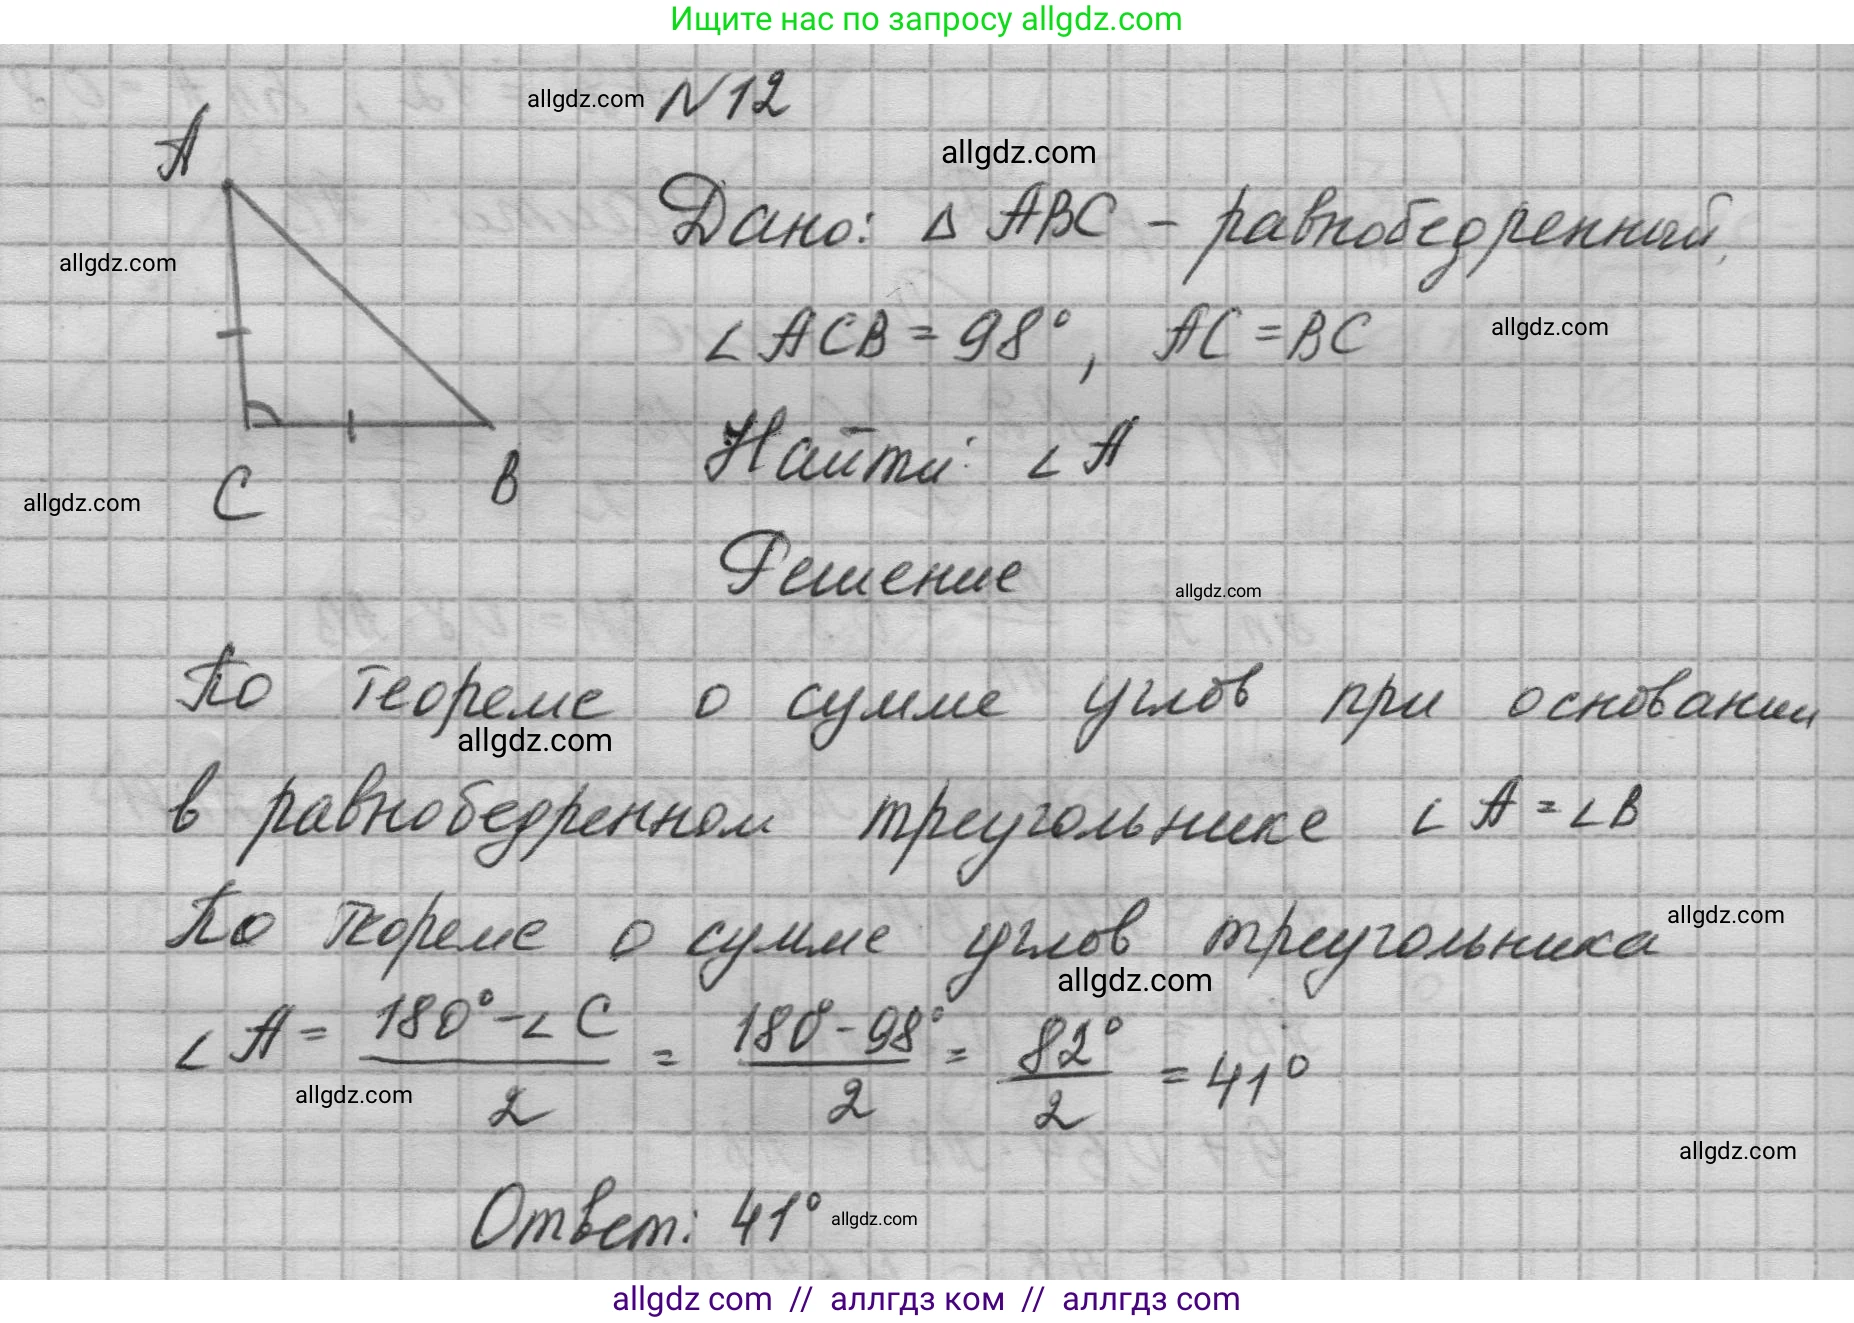 Ищите нас по запросу allgdz.com
allgdz.com
N 12
allgdz.com
A
Дано: Δ ABC - равнобедренный,
allgdz.com
∠ ACB = 98°, AC = BC
allgdz.com
Найти: ∠ A
C
B
allgdz.com
Решение
allgdz.com
По теореме о сумме углов при основании
allgdz.com
в равнобедренном треугольнике ∠ A = ∠ B
По теореме о сумме углов треугольника
allgdz.com
allgdz.com
∠ A = (180° - ∠ C)/2 = (180° - 98°)/2 = 82°/2 = 41°
allgdz.com
allgdz.com
Ответ: 41°
allgdz.com
allgdz com // аллгдз ком // аллгдз com